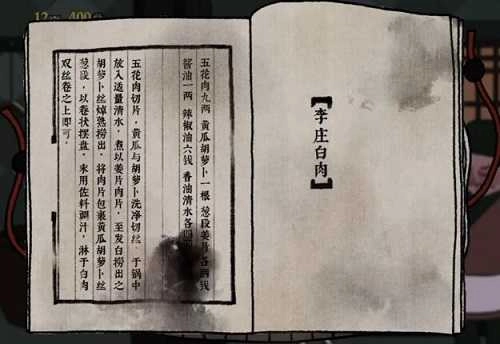 【李庄白肉】
五花肉九两 黄瓜胡萝卜一根 葱段姜片各两钱
酱油一两 辣椒油六钱 香油清水各四钱
五花肉切片，黄瓜与胡萝卜洗净切丝。于锅中
放入适量清水，煮以姜片肉片，至发白捞出之
胡萝卜丝焯熟捞出，将肉片包裹黄瓜胡萝卜丝
葱段，以卷状摆盘，末用佐料调汁，淋于白肉
双丝卷之上即可。